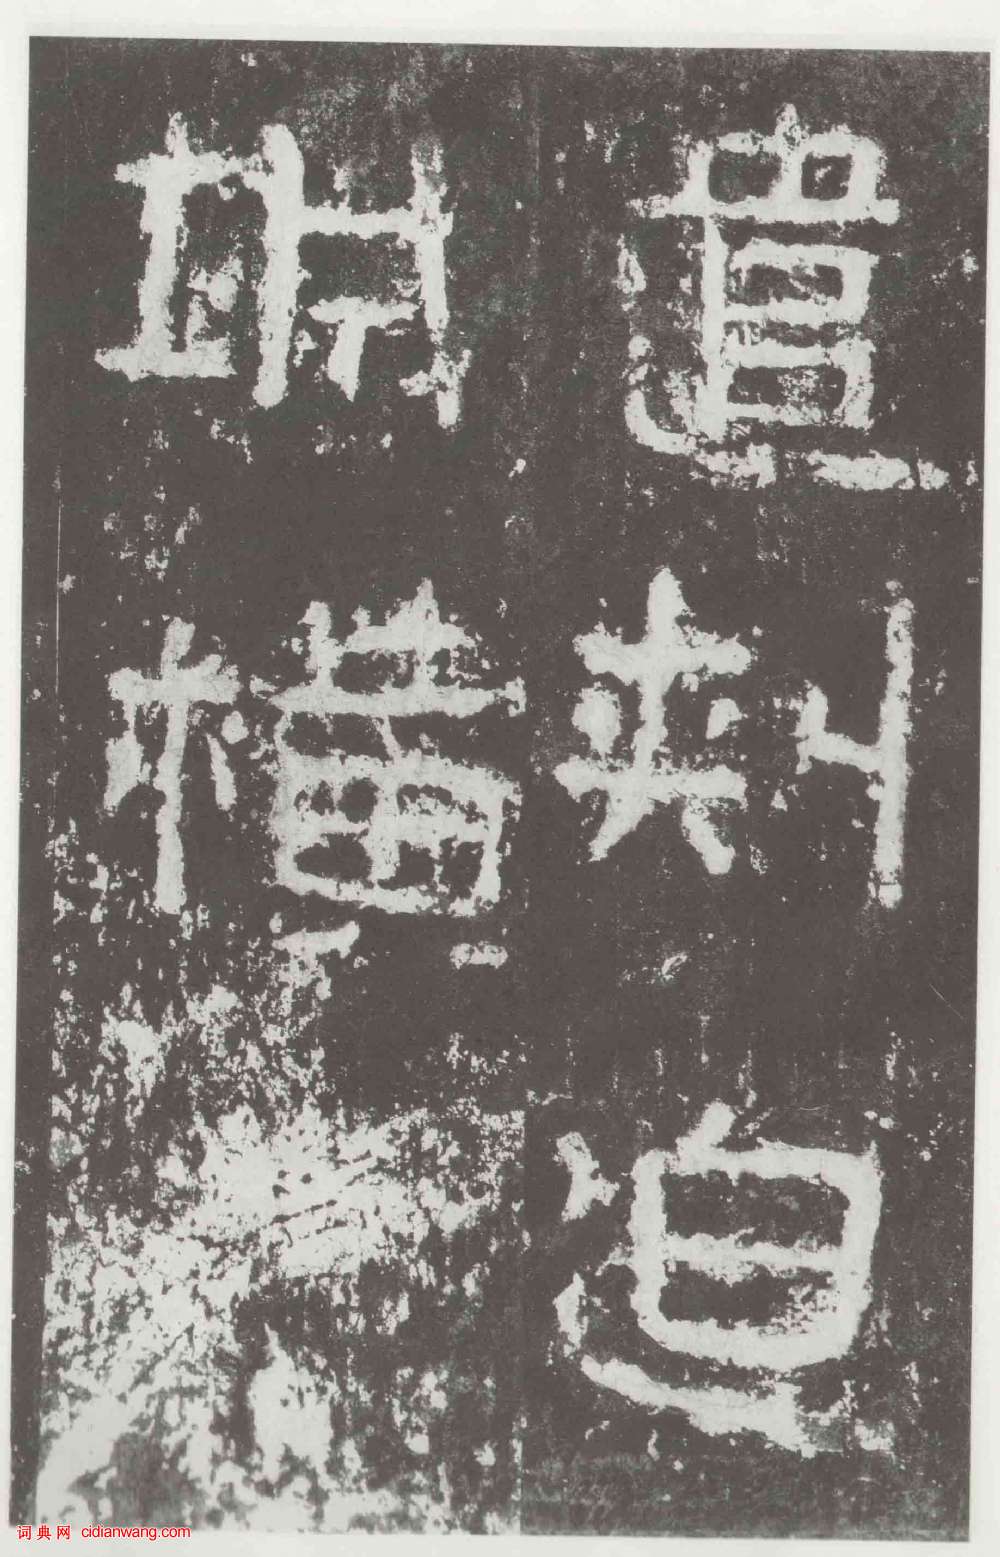 遣刺迫
城橫
词典网 cidianwang.com